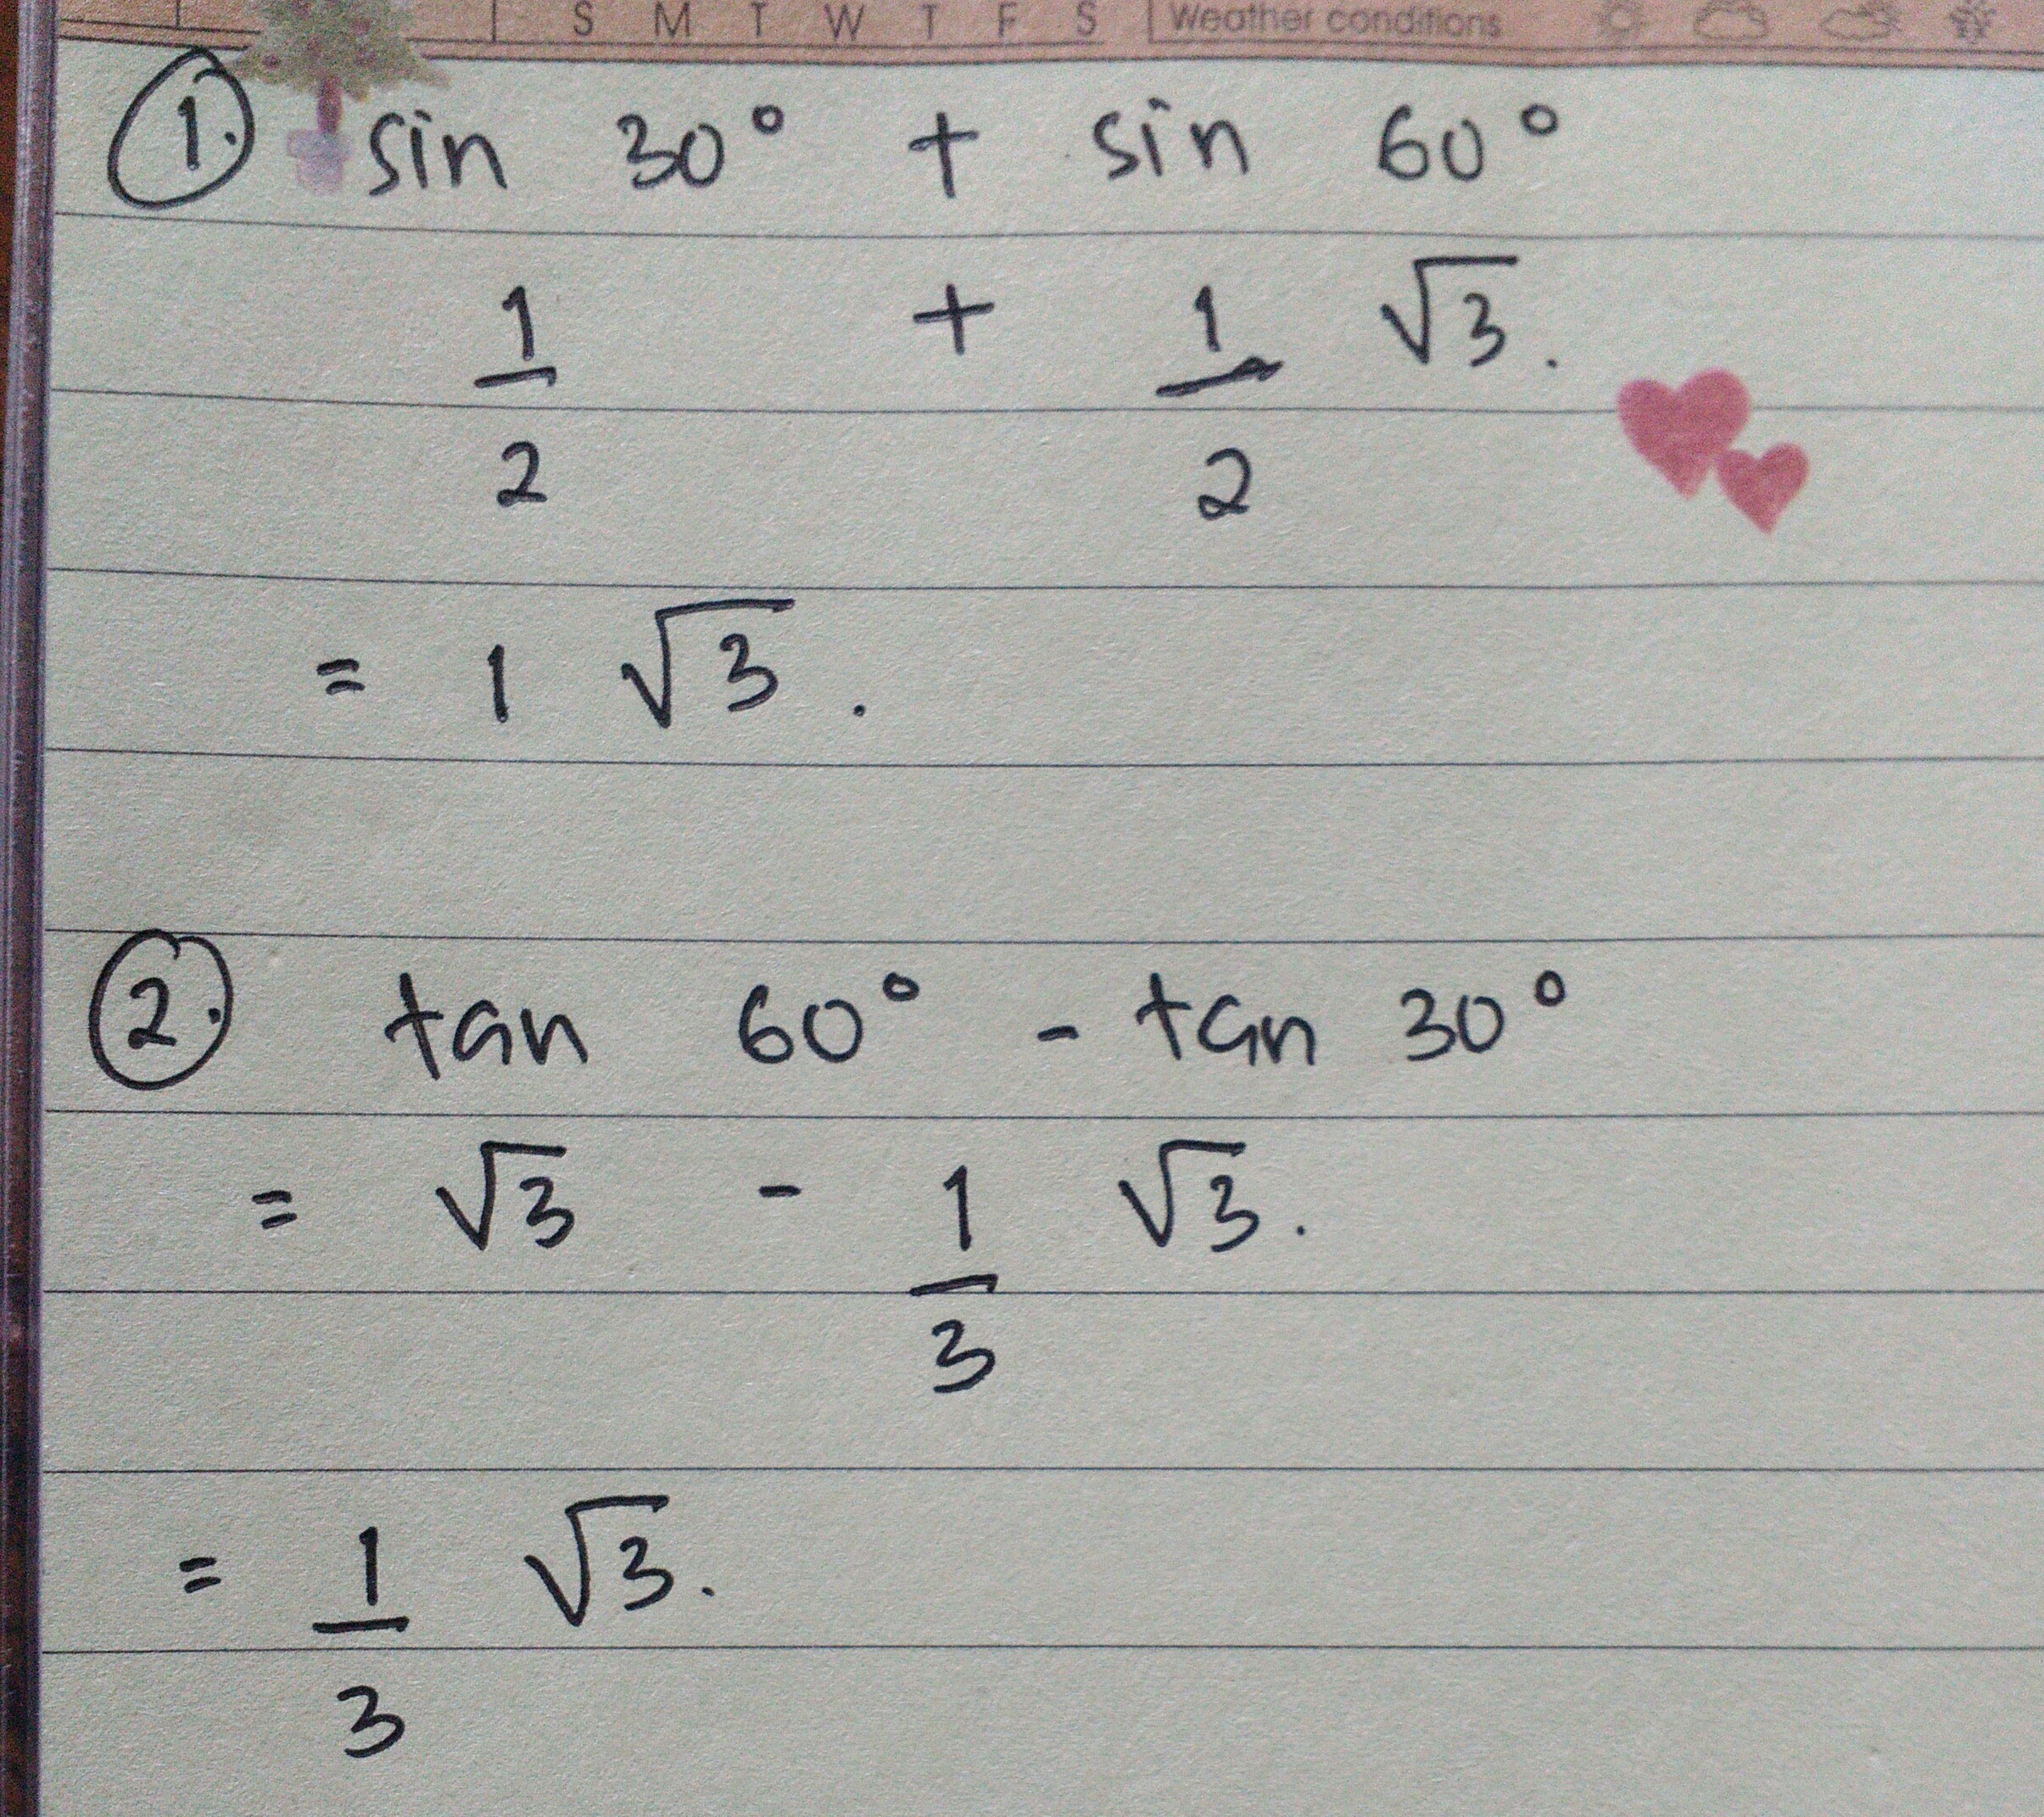 S M T W T F S Weather conditions
1. sin 30° + sin 60°
1/2 + 1/2 √3.
= 1 √3.
2. tan 60° - tan 30°
= √3 - 1/3 √3.
= 1/3 √3.